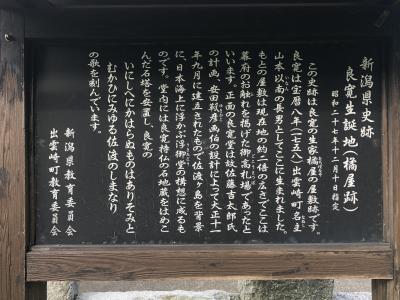 新潟県史跡
良寛生誕地（橘屋跡）
昭和二十七年十二月十日指定
この史跡は良寛の生家橘屋の屋敷跡です。
良寛は宝暦八年（一七五八）出雲崎町名主
山本以南の長男としてここに生まれました。
もとの屋敷は現在地の約二倍の広さでここは
幕府のお触れを掲げた御高札場であったと
いいます。正面の良寛堂は故佐藤吉太郎氏
の計画、安田靫彦画伯の設計によって大正十一
年九月に建立されたもので佐渡ヶ島を背景
に、日本海上に浮かぶ浮御堂の構想に成るも
のです。堂内には良寛持仏の石地蔵をはめこ
んだ石塔を安置し、良寛の
いにしへにかはらぬものはありそみと
むかひにみゆる佐渡のしまなり
の歌を刻んでいます。
新潟県教育委員会
出雲崎町教育委員会